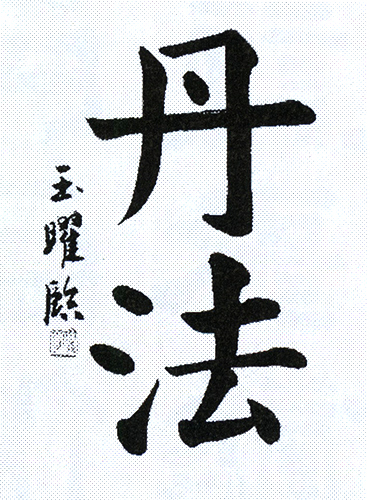 丹法
玉曜臨